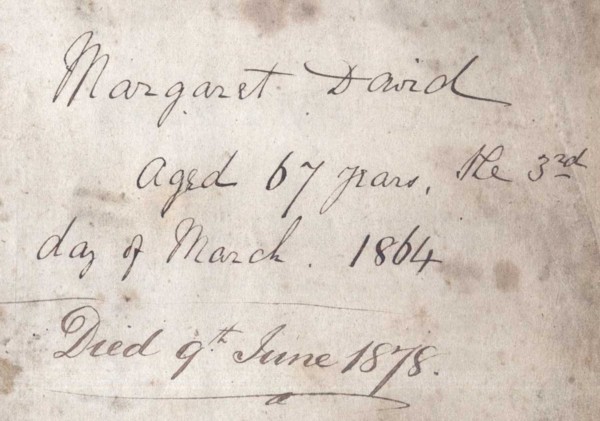 Margaret David
Aged 67 years, the 3rd
day of March. 1864
Died 9th June 1878.